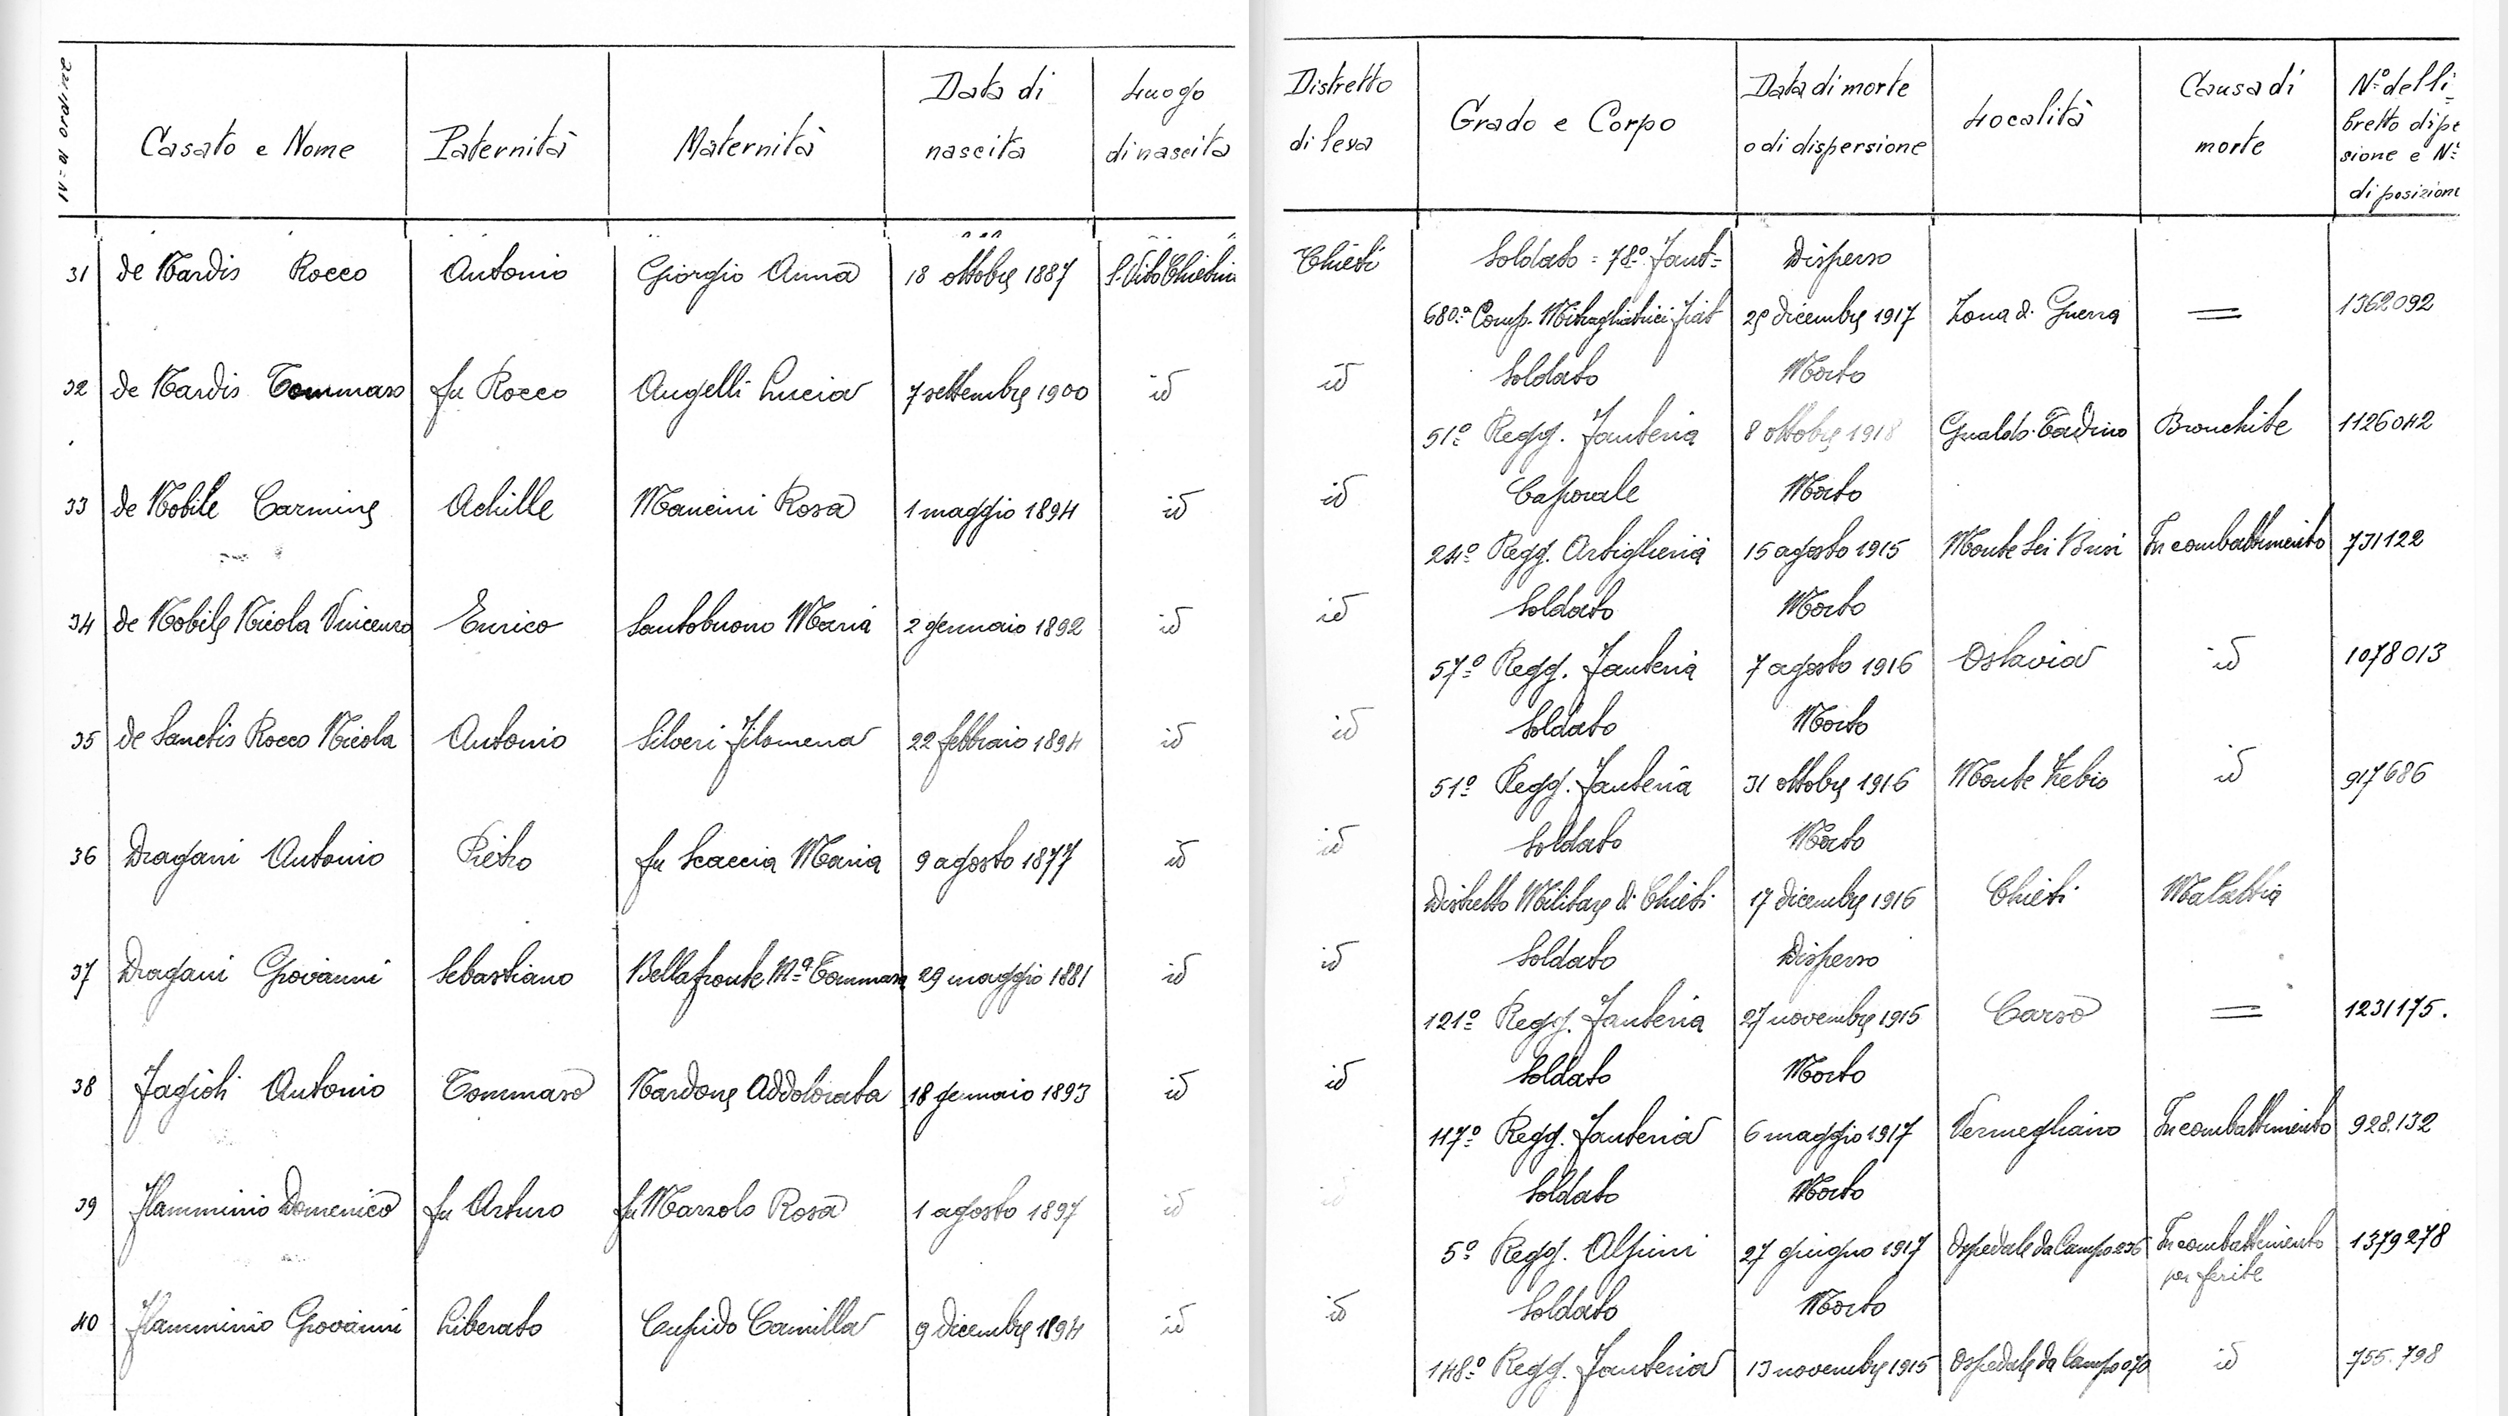 N.º d'ordine
Casato e Nome Paternità Maternità Data di nascita Luogo di nascita
Distretto di leva Grado e Corpo Data di morte o di dispersione Località Causa di morte Nº del li=
bretto di pe
sione e Nº
di posizione
31 de Nardis Rocco Antonio Giorgio Anna 18 ottobre 1887 S. Vito Chietino Chieti Soldato = 78º Fant= Disperso
680ª Comp. Mitragliatrici Fiat 29 dicembre 1917 Zona di Guerra = 1362092
32 de Nardis Tommaso fu Rocco Angelli Lucia 7 settembre 1900 id id Soldato Morto
51º Regg. Fanteria 8 ottobre 1918 Gualdo-Tadino Bronchite 1126042
33 de Nobile Carmine Achille Mancini Rosa 1 maggio 1894 id id Caporale Morto
24º Regg. Artiglieria 15 agosto 1915 Monte Sei Busi In combattimento 731122
34 de Nobile Nicola Vincenzo Enrico Santobuono Maria 2 gennaio 1892 id id Soldato Morto
57º Regg. Fanteria 7 agosto 1916 Oslavia id 1078013
35 de Sanctis Rocco Nicola Antonio Silveri Filomena 22 febbraio 1894 id id Soldato Morto
51º Regg. Fanteria 31 ottobre 1916 Monte Zebio id 917686
36 Dragani Antonio Pietro fu Scaccia Maria 9 agosto 1877 id id Soldato Morto
Distretto Militare di Chieti 17 dicembre 1916 Chieti Malattia
37 Dragani Giovanni Sebastiano Bellafronte Mª Tommasa 29 maggio 1881 id id Soldato Disperso
121º Regg. Fanteria 27 novembre 1915 Carso = 1231175.
38 Fagioli Antonio Tommaso Nardone Addolorata 18 gennaio 1893 id id Soldato Morto
117º Regg. Fanteria 6 maggio 1917 Vermegliano In combattimento 928.132
39 Flamminio Domenico fu Arturo fu Marzolo Rosa 1 agosto 1897 id id Soldato Morto
5º Regg. Alpini 27 giugno 1917 Ospedale da Campo 236 In combattimento 1379278
per ferite
40 Flamminio Giovanni Liberato Cupido Camilla 9 dicembre 1894 id id Soldato Morto
148º Regg. Fanteria 13 novembre 1915 Ospedale da Campo 070 id 755.798